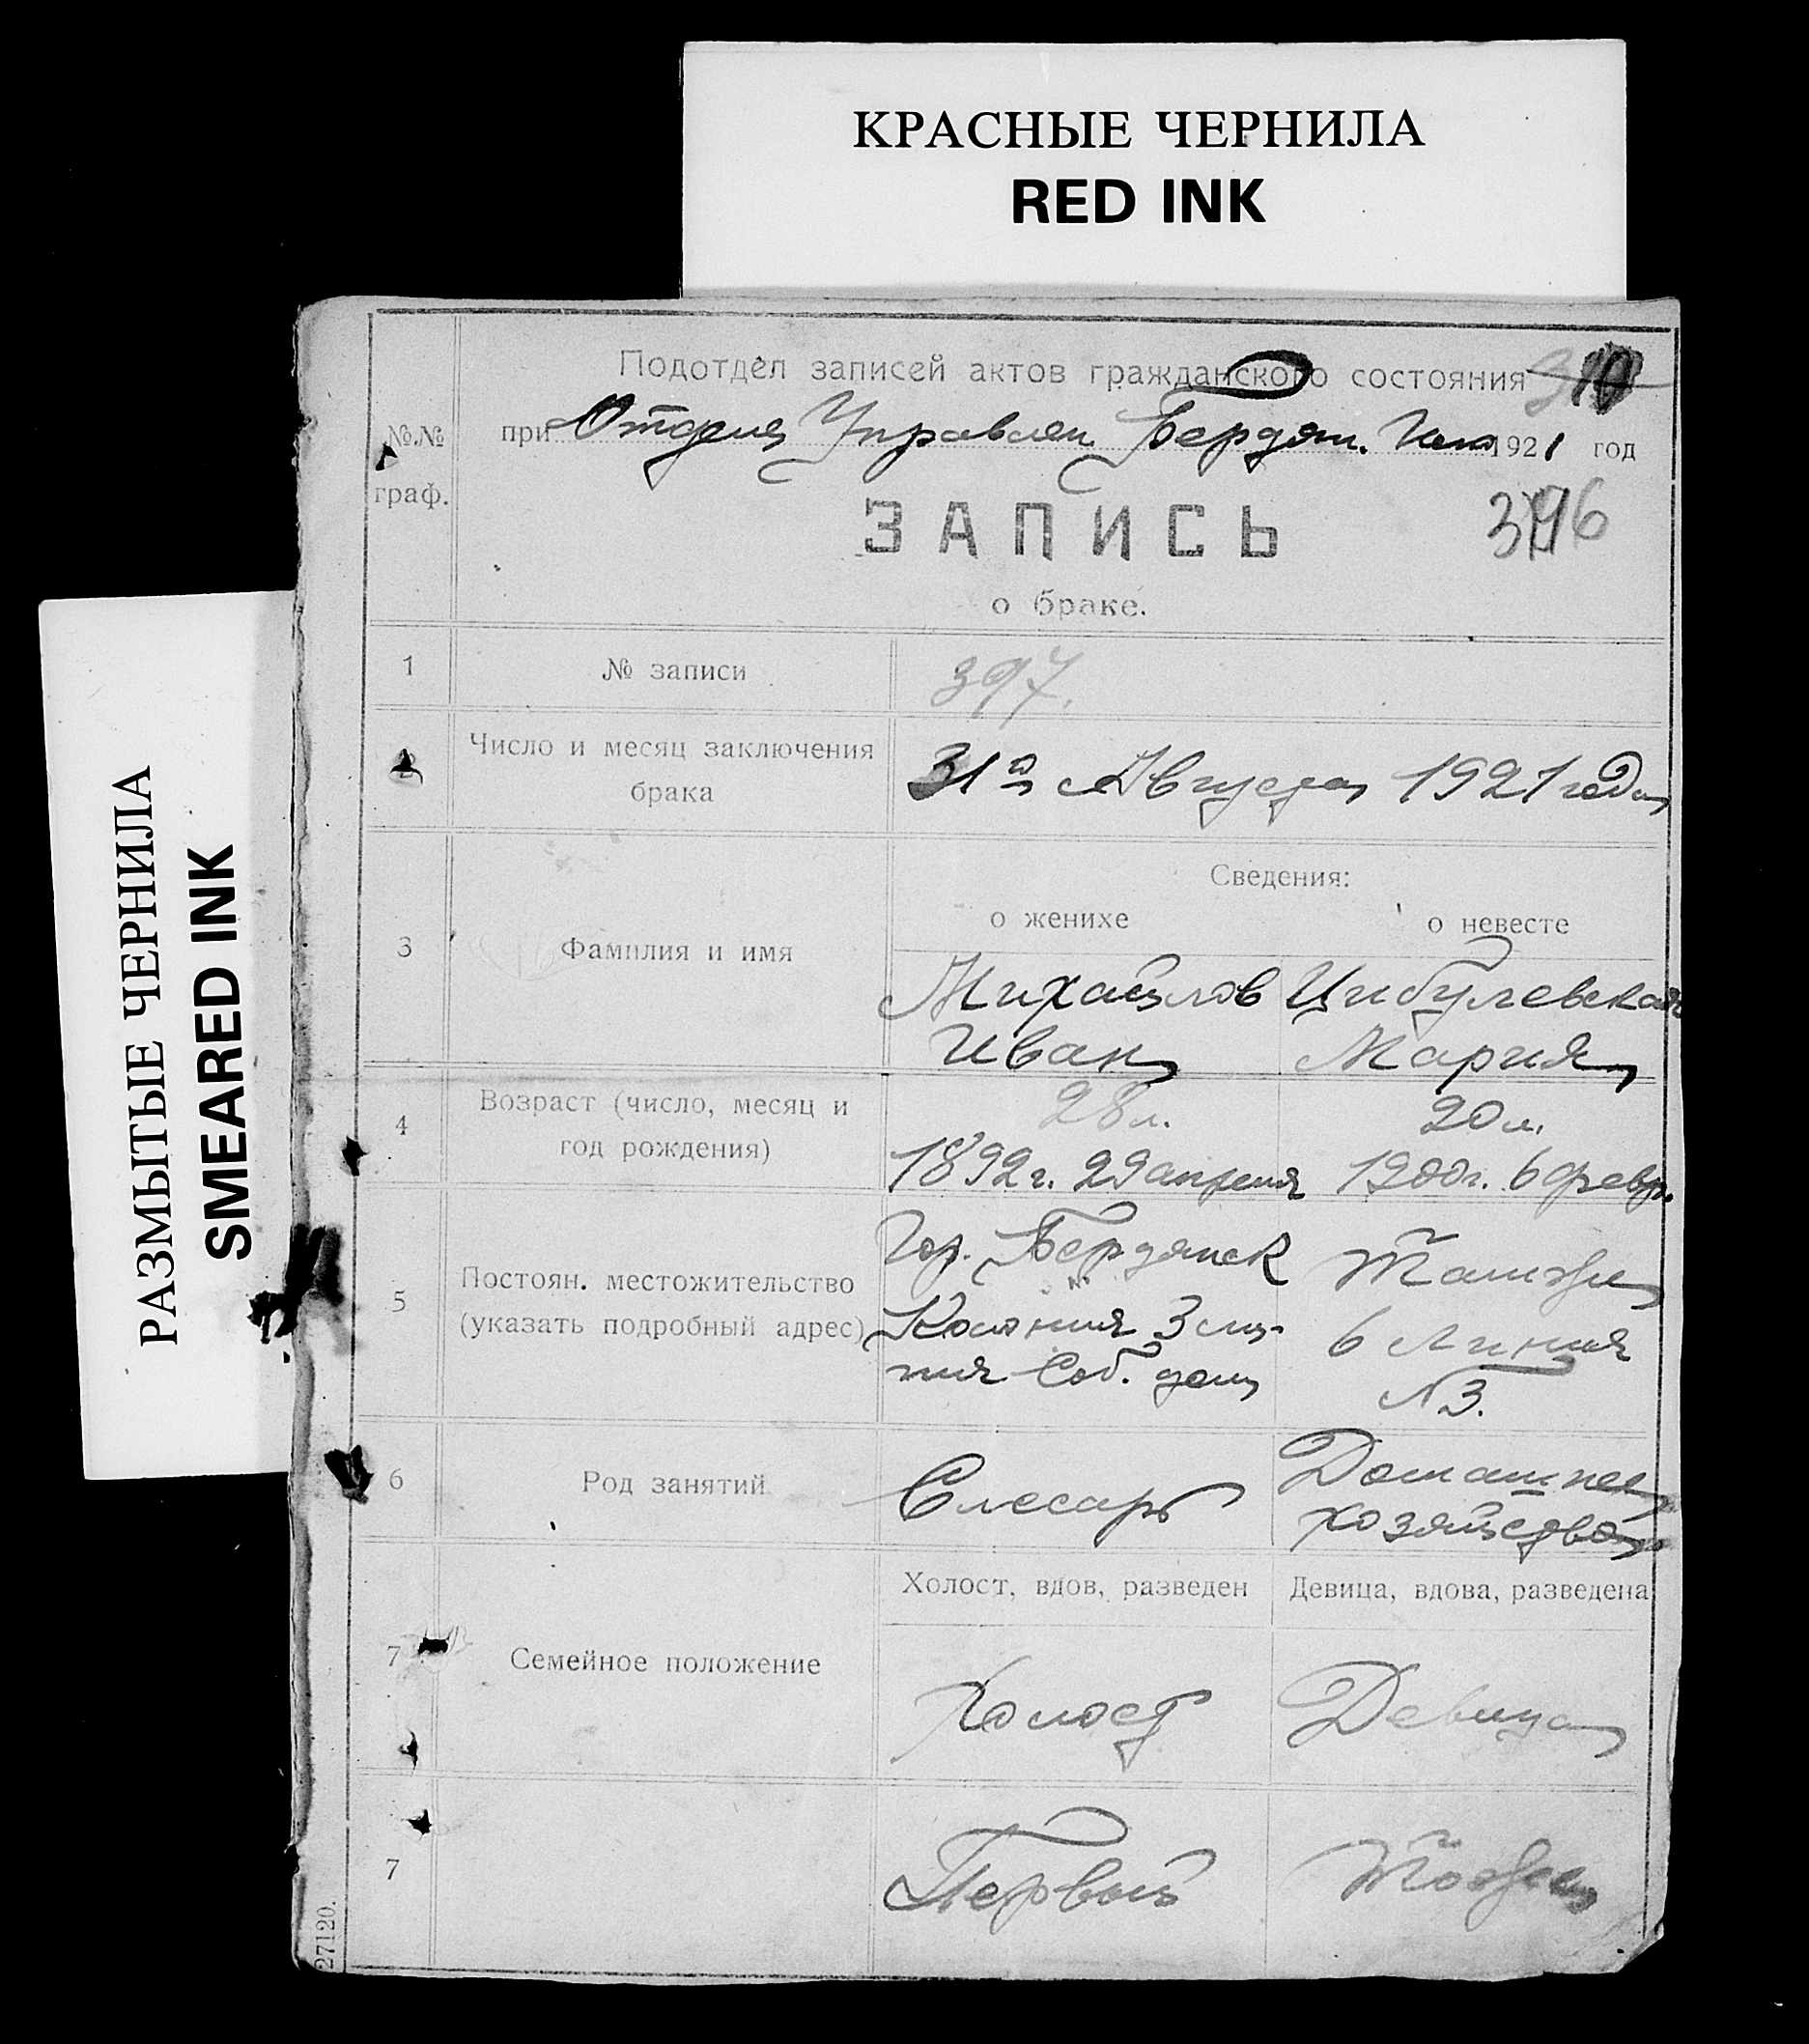 КРАСНЫЕ ЧЕРНИЛА
RED INK
РАЗМЫТЫЕ ЧЕРНИЛА
SMEARED INK
Подотдел записей актов гражданского состояния
№№ граф.
при Отдела Управлен Бердян. 1921 год
ЗАПИСЬ
396
о браке.
1 № записи 397.
2 Число и месяц заключения брака
31го Августа 1921 года
Сведения:
о женихе о невесте
3 Фамилия и имя
Михайлов Цибулевская
Иван Мария
4 Возраст (число, месяц и год рождения)
28 л. 20 л.
1892 г. 29 апреля 1900 г. 6 февр.
5 Постоян. местожительство (указать подробный адрес)
Гор. Бердянск Там же
Колония 3 ли- 6 Линия
ния Соб. дом №3.
6 Род занятий
Слесарь Домашнее
хозяйство
Холост, вдов, разведен Девица, вдова, разведена
7 Семейное положение
Холост Девица
7 Первый Тоже
27120.